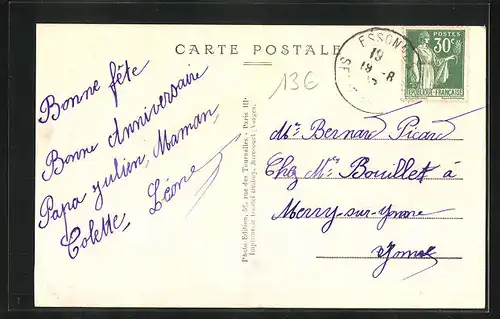 CARTE POSTALE
ESSONN
19
19 -8
SE
POSTES
30c
RÉPUBLIQUE FRANÇAISE
13€
Bonne fête
Bonne Anniversaire
Papa Julien, Maman,
Colette, Léone
Phodo-Edition, rue des Tournelles - Paris III
Imprimeur
Mr Bernard Picard
Chez Mr Bouillet à
Merry-sur-Yonne
Yonne